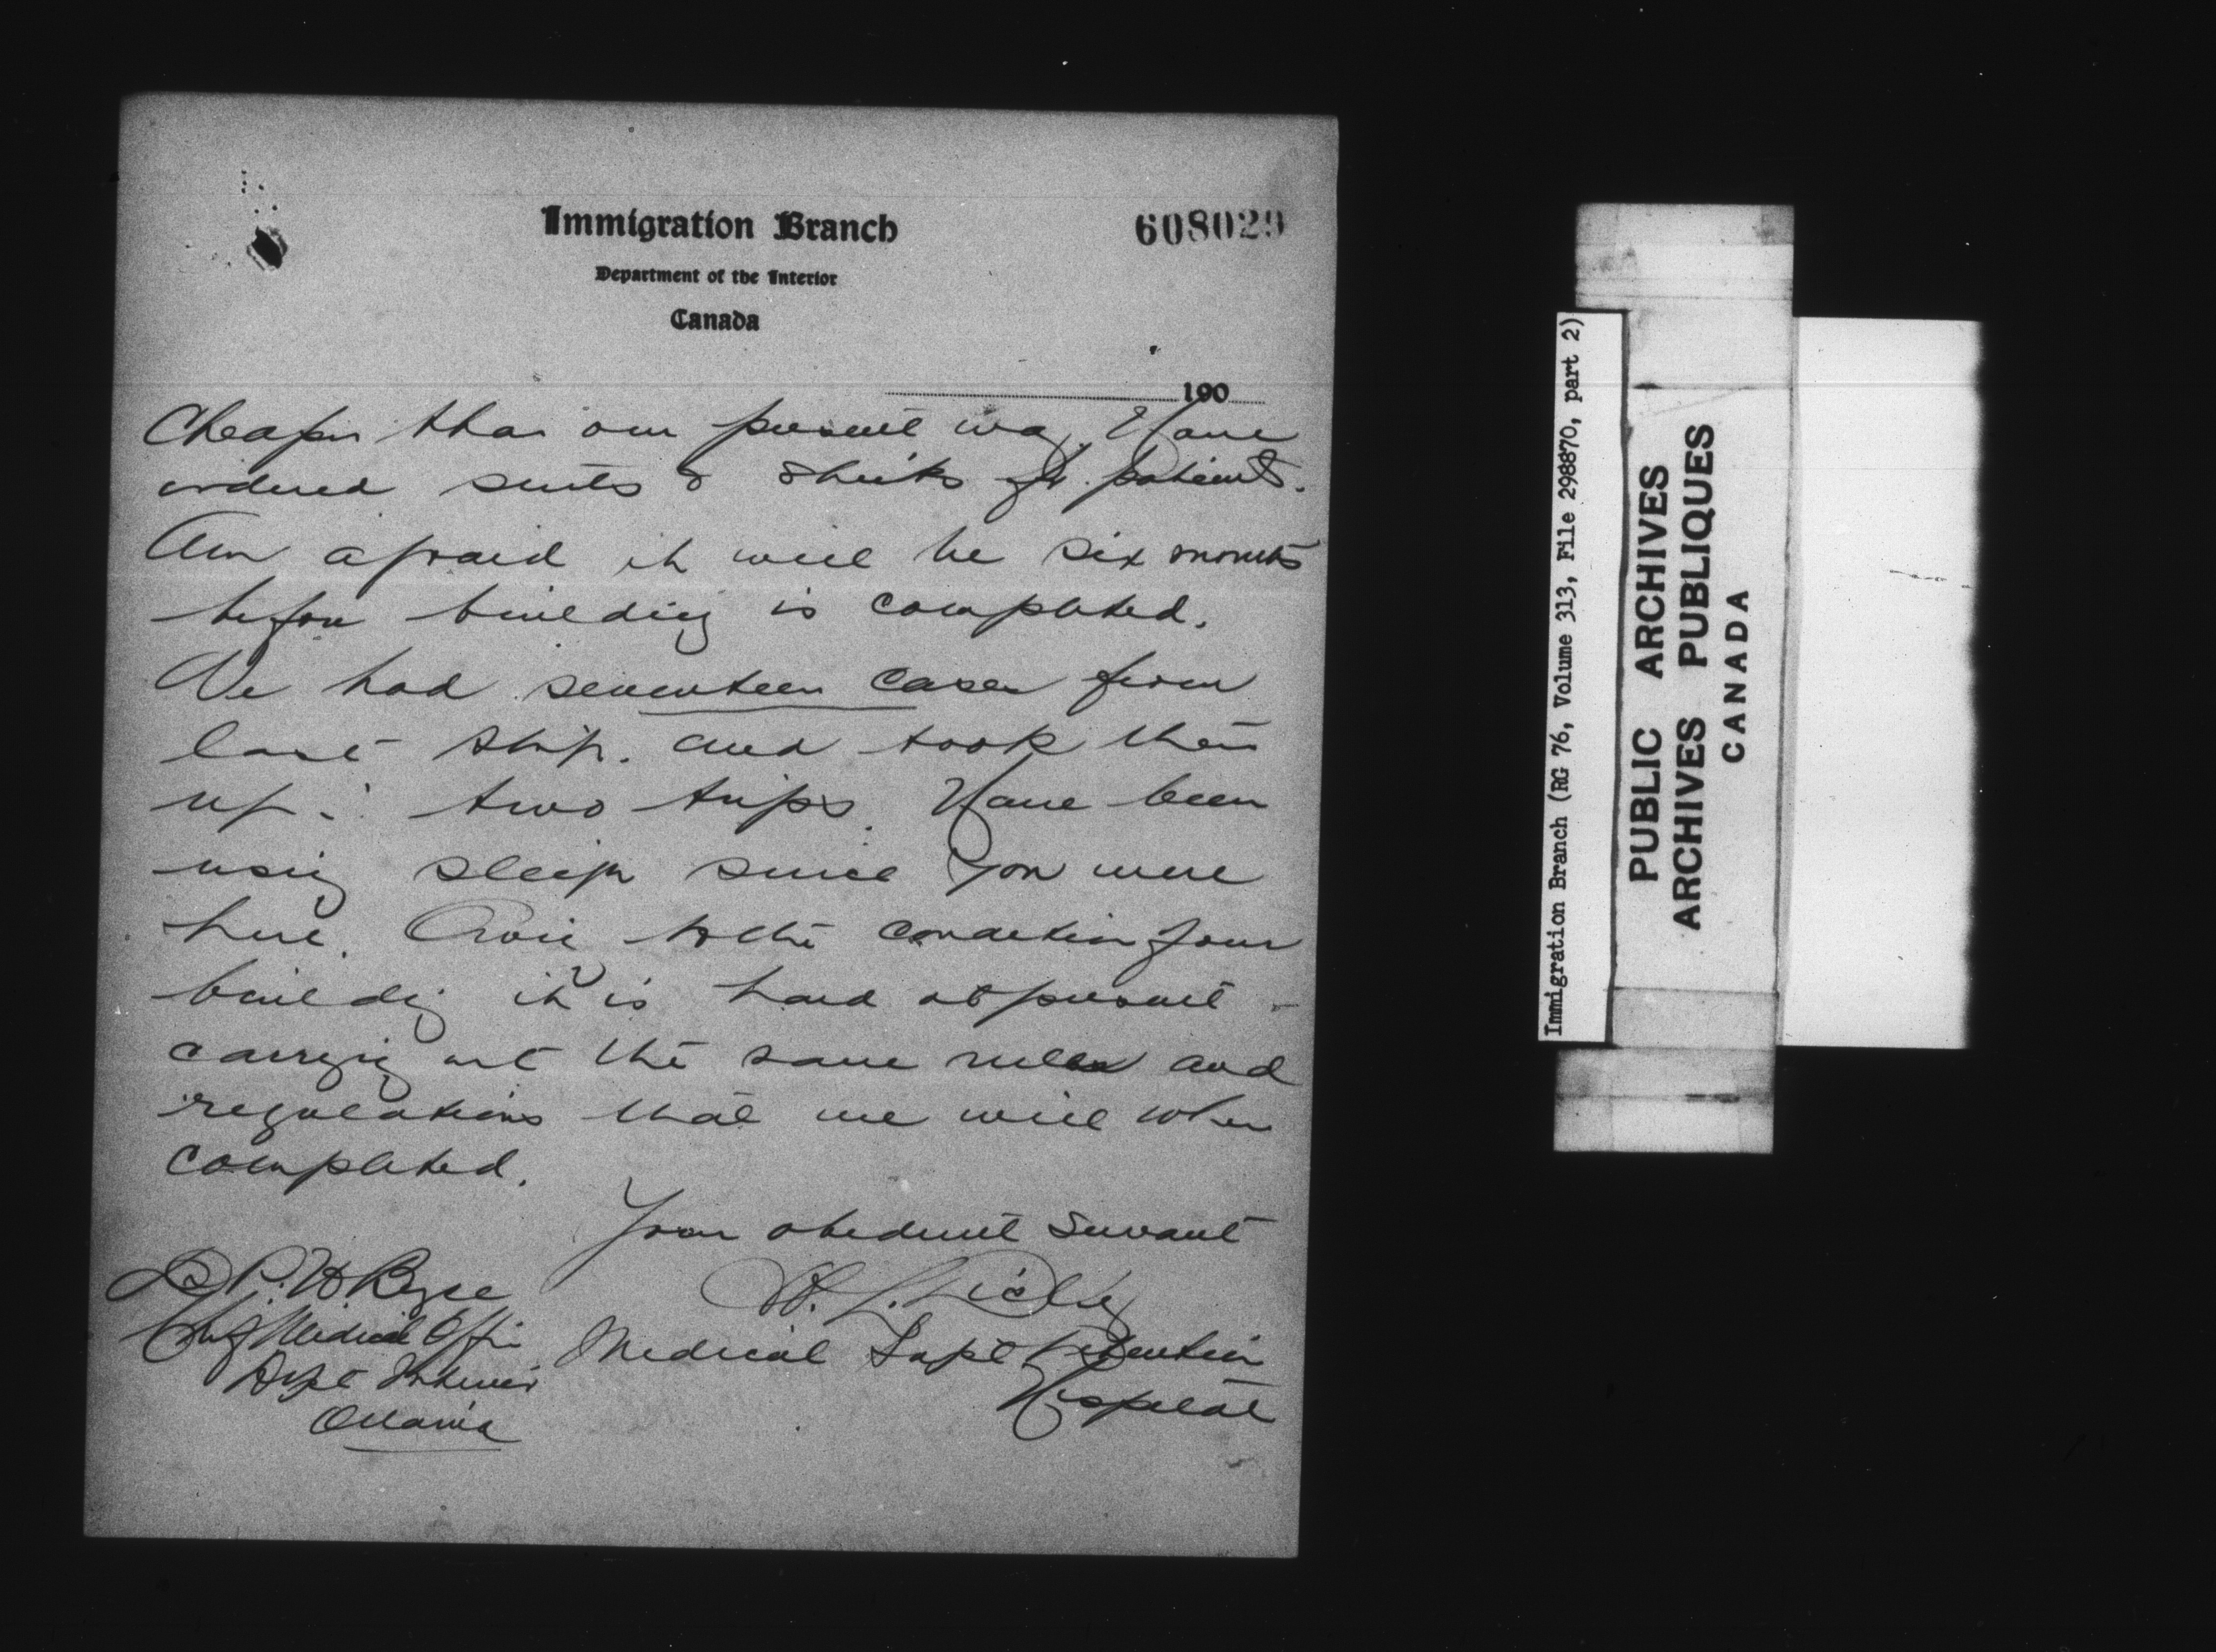 Immigration Branch
608029
Department of the Interior
Canada
190
Cheaper than our present way. Have
ordered suits & shirts for patients.
Am afraid it will be six months
before building is completed.
We had seventeen cases from
last ship. and took them
up in two trips. Have been
using sleigh since you were
here. Owing to the condition of our
building it is hard at present
carrying out the same rules and
regulations that we will when
completed.
Your obedient Servant
Dr P. H Bryce
Chief Medical Offi
Dept Interior
Ottawa
Medical Supt Detention
Hospital
Immigration Branch (RG 76, Volume 313, File 298870, part 2)
PUBLIC ARCHIVES
ARCHIVES PUBLIQUES
CANADA